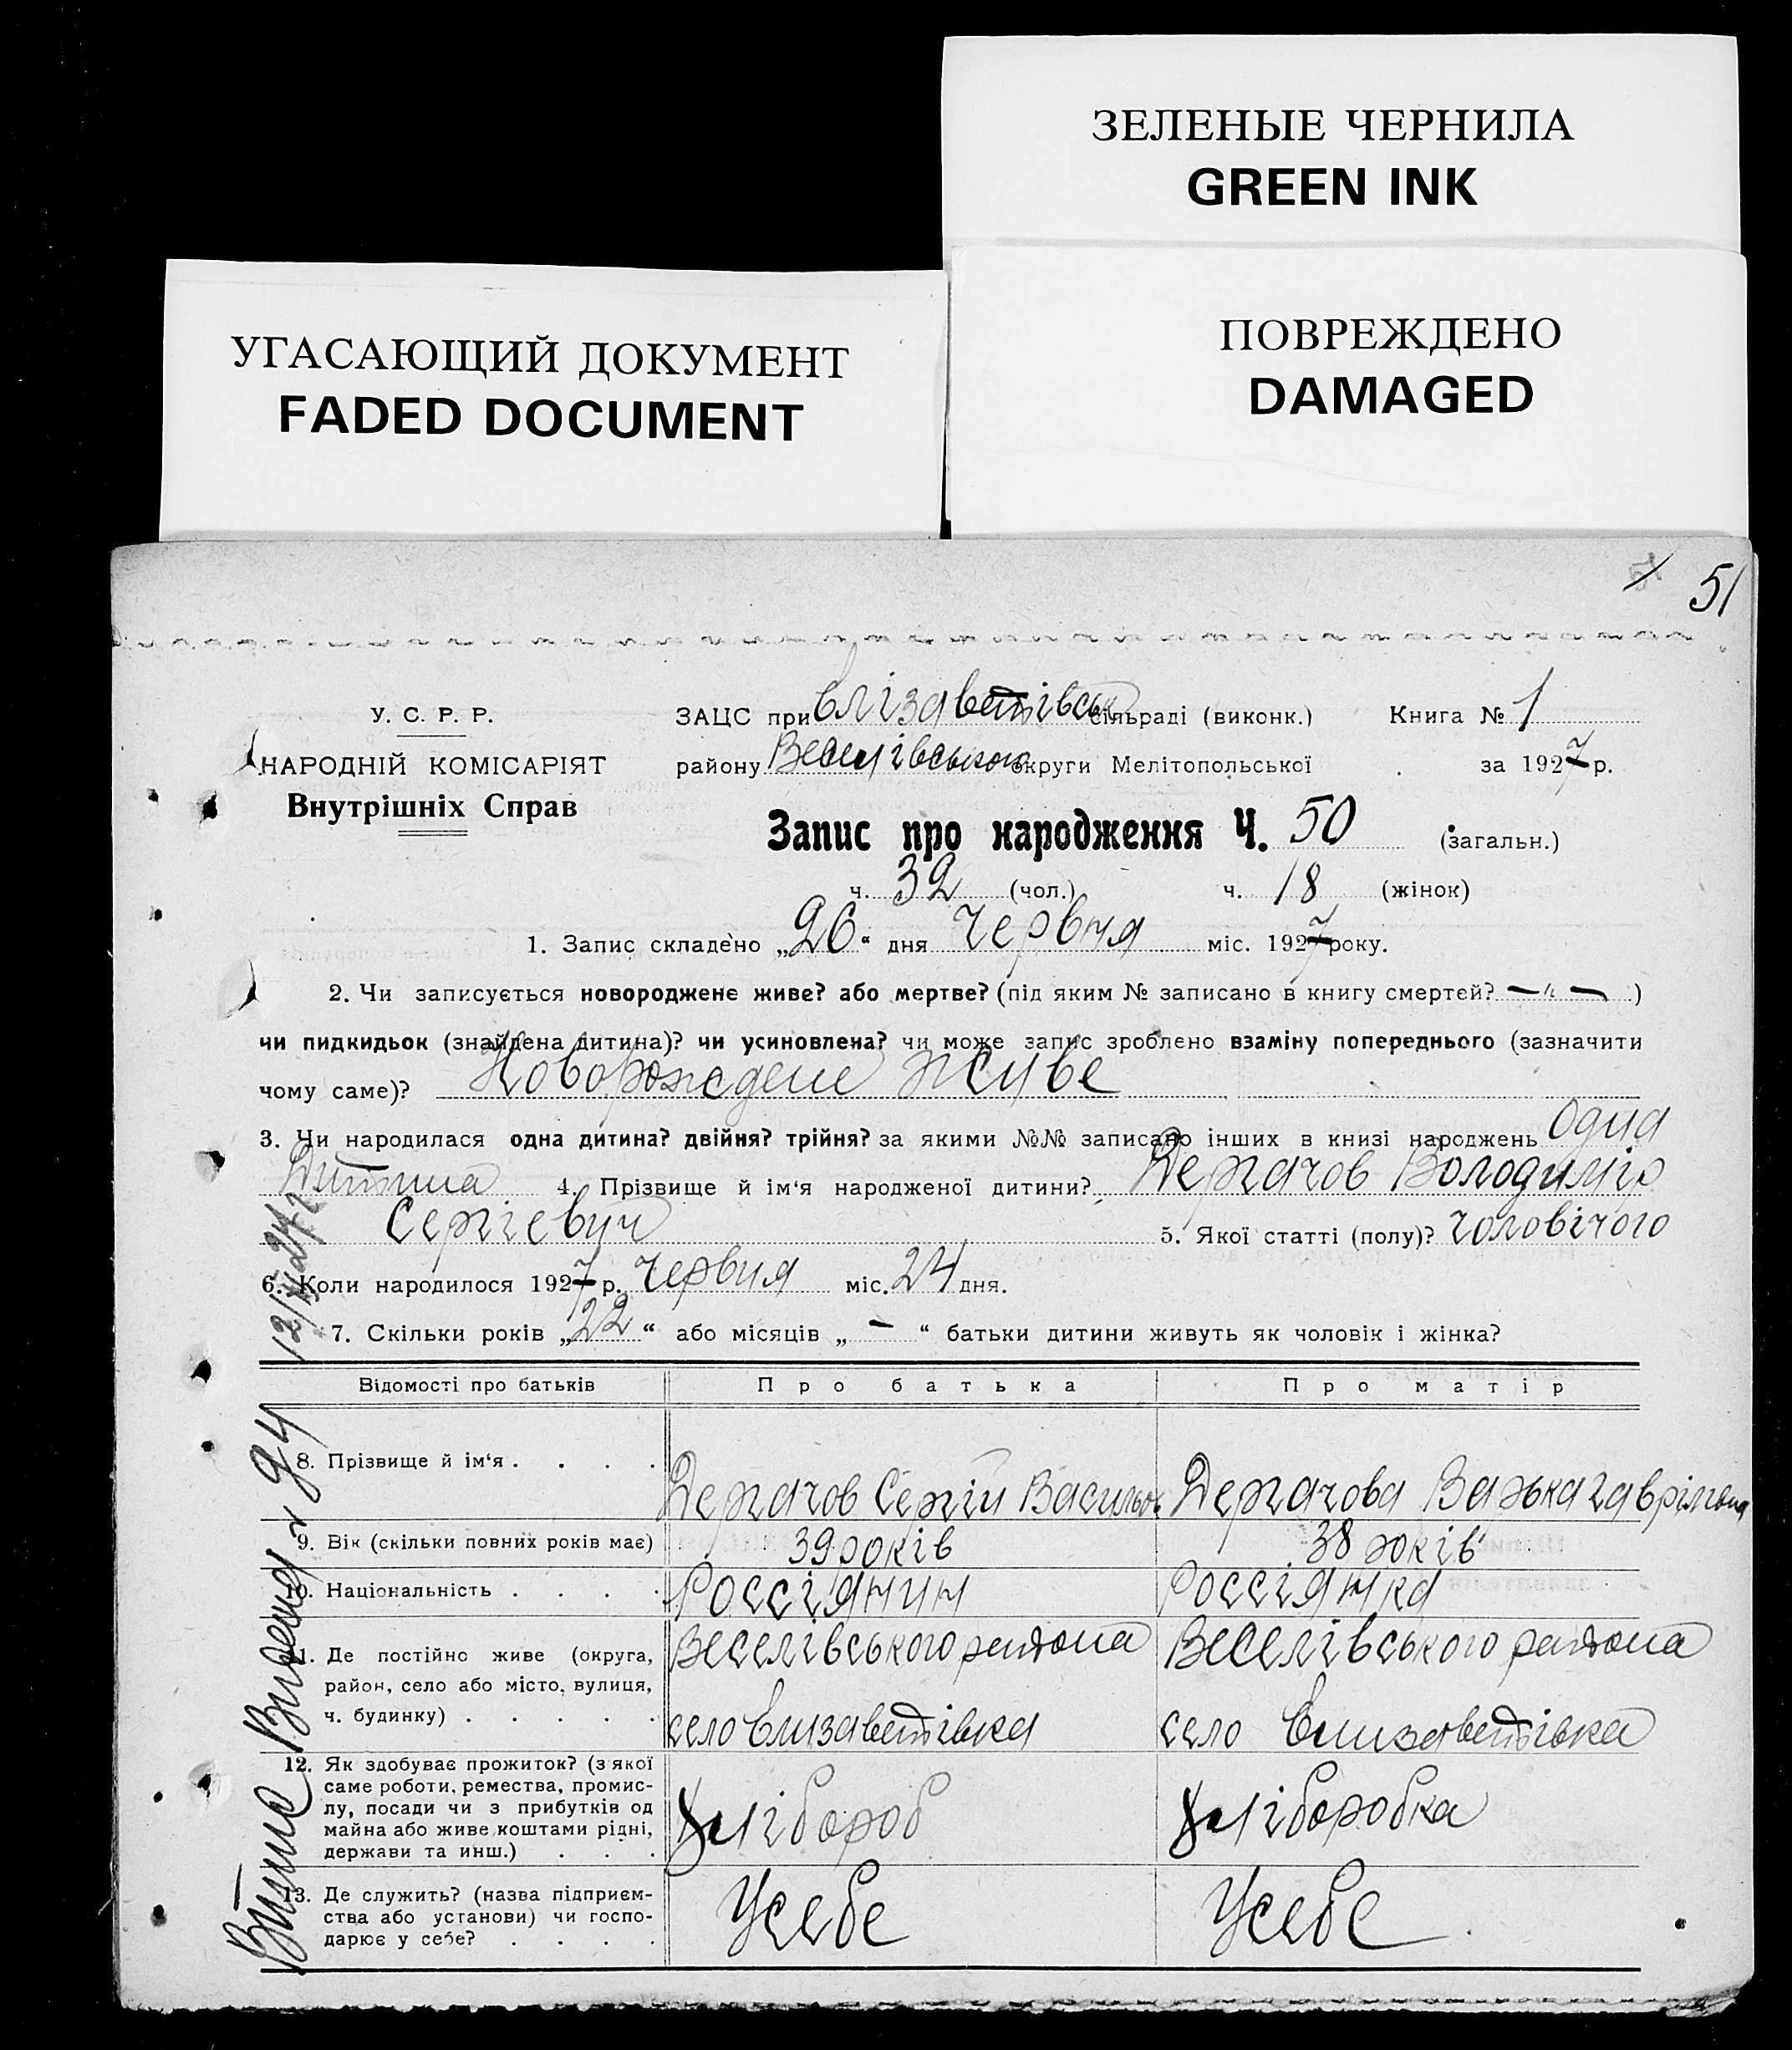 ЗЕЛЕНЫЕ ЧЕРНИЛА
GREEN INK
УГАСАЮЩИЙ ДОКУМЕНТ
FADED DOCUMENT
ПОВРЕЖДЕНО
DAMAGED
51
У. С. Р. Р.
НАРОДНІЙ КОМІСАРІЯТ
Внутрішніх Справ
ЗАЦС при Єлізаветівськ сільраді (виконк.) Книга № 1
району Веселівського округи Мелітопольської за 1927 р.
Запис про народження Ч. 50 (загальн.)
ч. 32 (чол.) ч. 18 (жінок)
1. Запис складено „26“ дня Червня міс. 1927 року.
2. Чи записується новороджене живе? або мертве? (під яким № записано в книгу смертей? — „ —)
чи пидкидьок (знайдена дитина)? чи усиновлена? чи може запис зроблено взаміну попереднього (зазначити
чому саме)? Новорождене живе
3. Чи народилася одна дитина? двійня? трійня? за якими №№ записано інших в книзі народжень Одна
Дитина 4. Прізвище й ім‘я народженої дитини? Дергачов Володимір
Сергієвич 5. Якої статті (полу)? Чоловічого
6. Коли народилося 1927 р. Червня міс. 24 дня.
7. Скільки років „22“ або місяців „ — “ батьки дитини живуть як чоловік і жінка?
Відомості про батьків Про батька Про матір
8. Прізвище й ім‘я . . . . Дергачов Сергій Васильов Дергачова Варька Гаврілівна
9. Вік (скільки повних років має) 39 років 38 років
10. Національність . . . . Россіянин Россіянка
11. Де постійно живе (округа, Веселівського района Веселівського района
район, село або місто, вулиця,
ч. будинку) . . . . . село Єлизаветівка село Єлизаветівка
12. Як здобуває прожиток? (з якої
саме роботи, ремества, промис-
лу, посади чи з прибутків од
майна або живе коштами рідні,
держави та инш.) . . . Хлібороб Хліборобка
13. Де служить? (назва підприєм-
ства або установи) чи госпо-
дарює у себе? . . . . Усебе Усебе